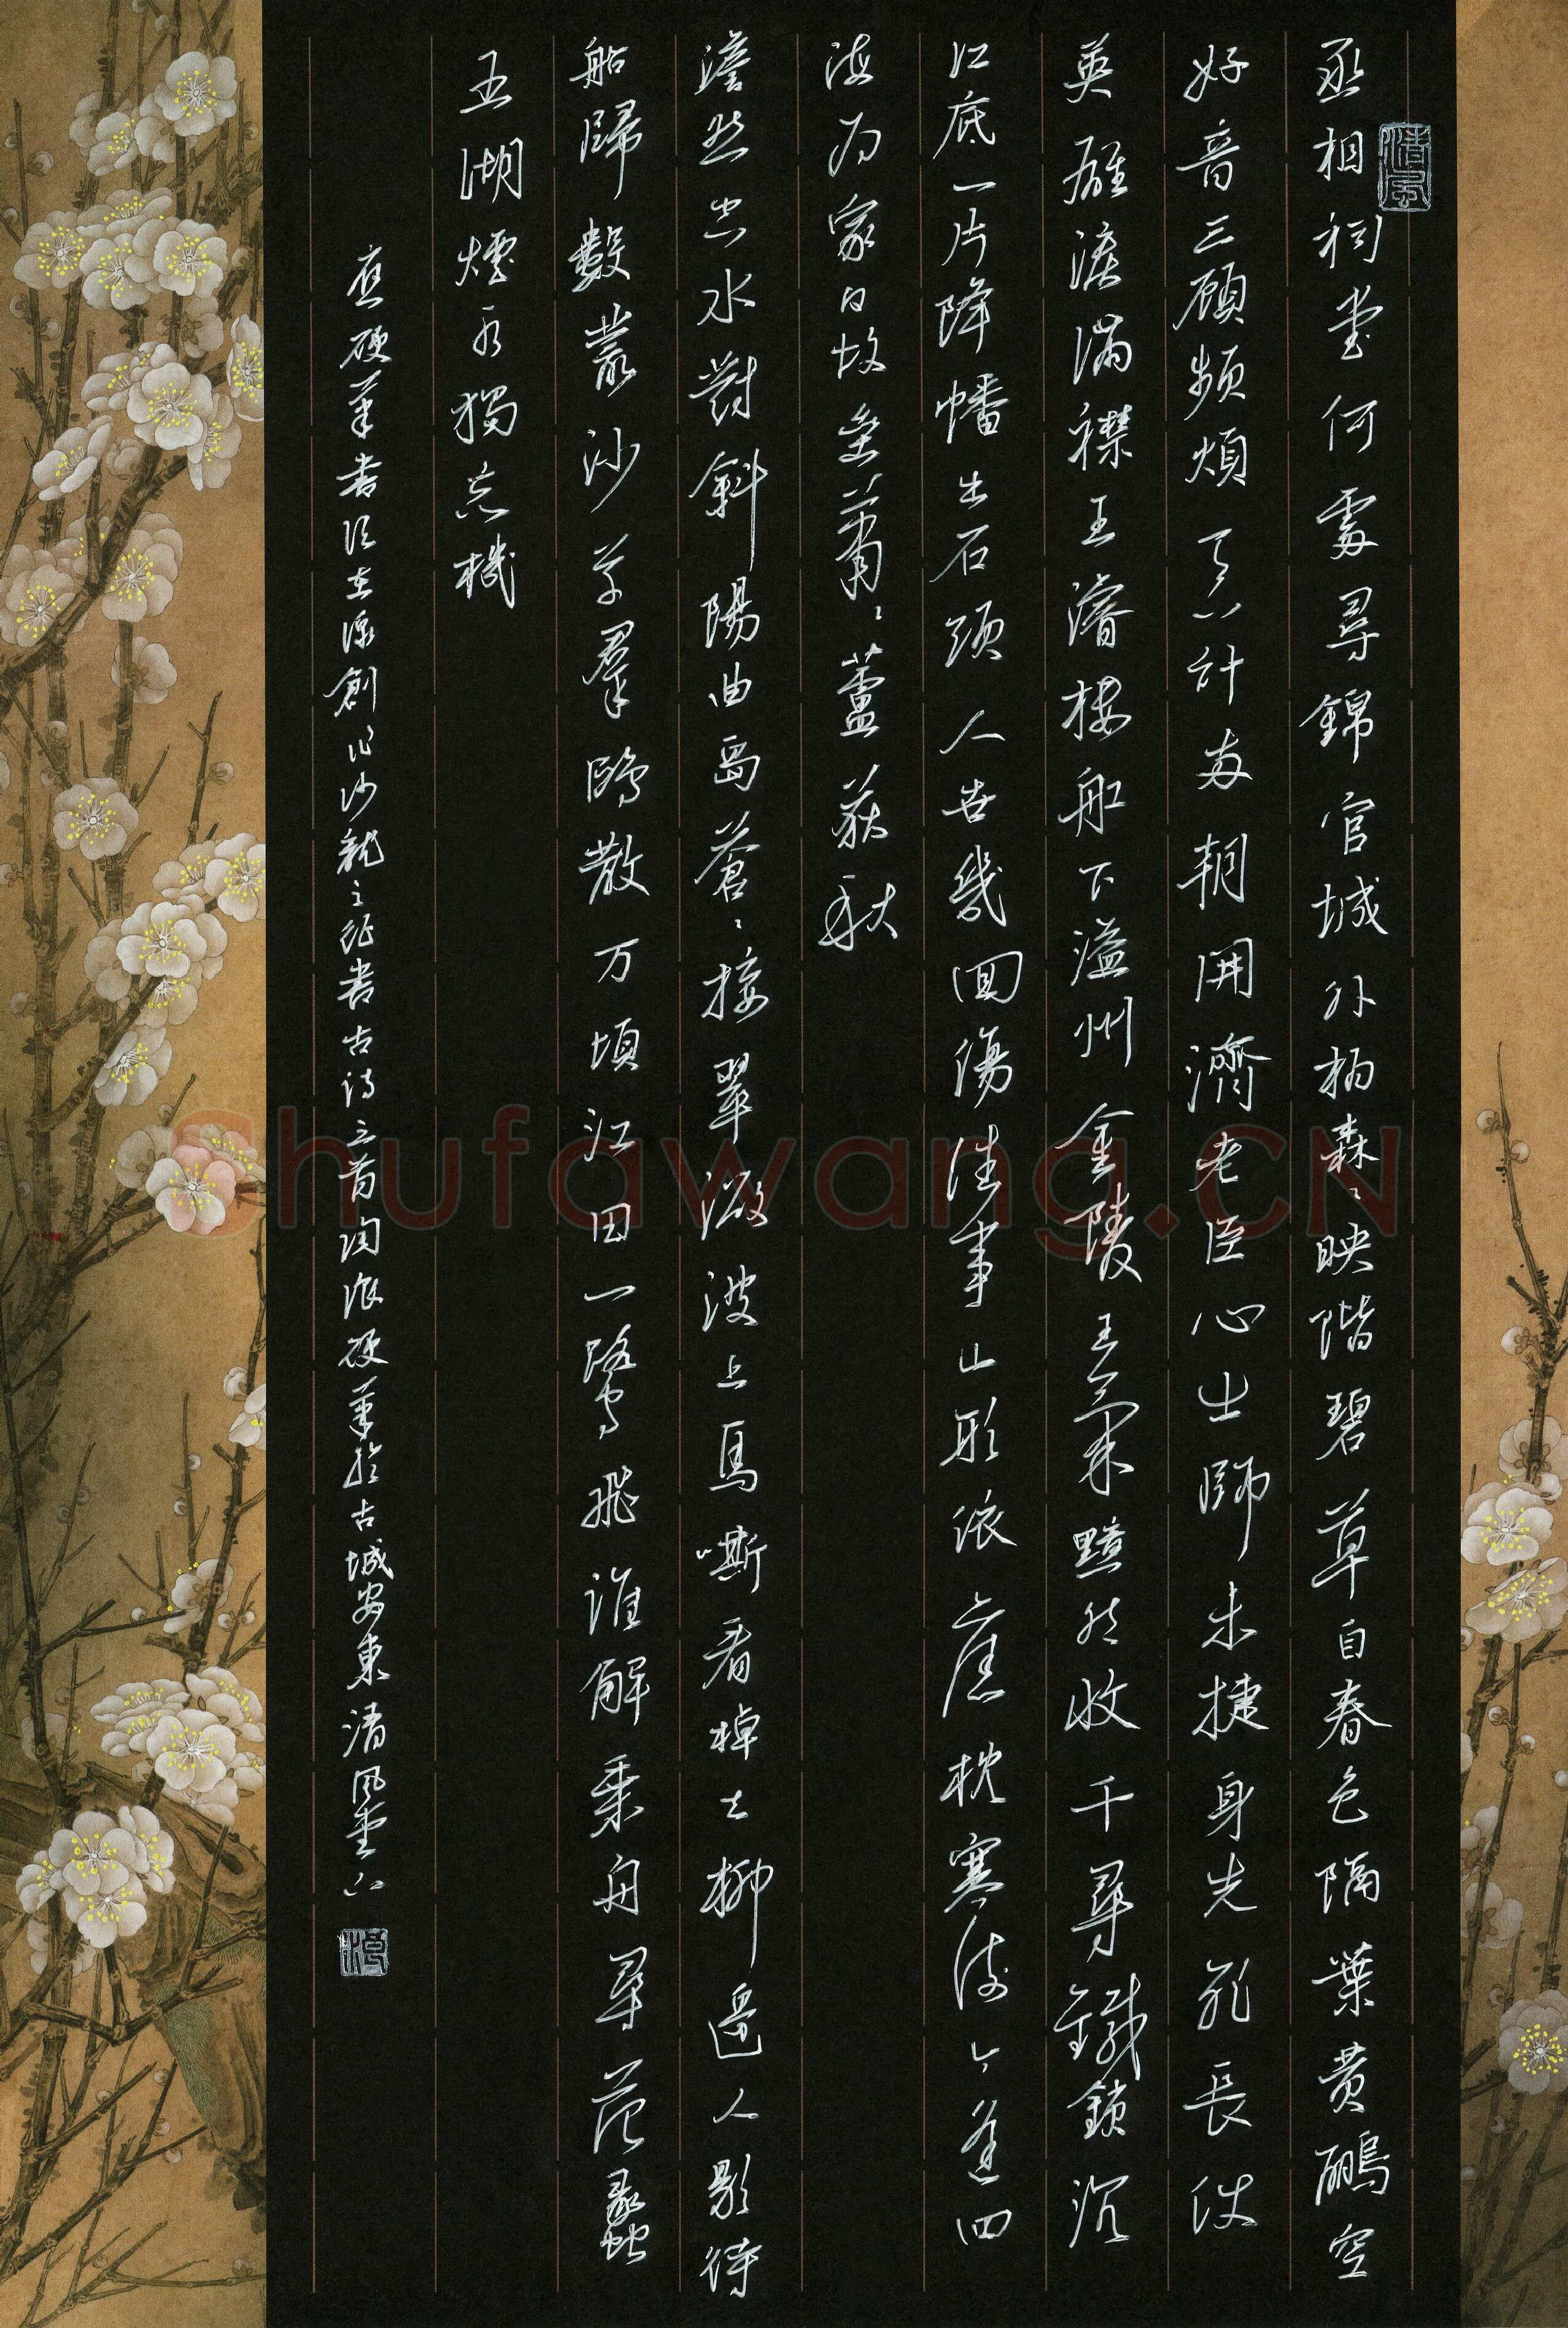 清風
丞相祠堂何處尋錦官城外柏森〻映階碧草自春色隔葉黃鸝空
好音三顧頻煩天下計兩朝開濟老臣心出師未捷身先死長使
英雄淚滿襟王濬樓船下溢州金陵王氣黯然收千尋鐵鎖沉
江底一片降幡出石頭人世幾回傷往事山形依舊枕寒流今逢四
海為家日故壘蕭〻蘆荻秋
澹然空水對斜陽曲島蒼〻接翠微波上馬嘶看棹去柳邊人影待
船歸數叢沙草羣鷗散万頃江田一鷺飛誰解乘舟尋范蠡
五湖煙水獨忘機
應硬筆書法在線創作沙龍之征書古詩三首硬筆於古城安東清風堂下
Shufawang.CN